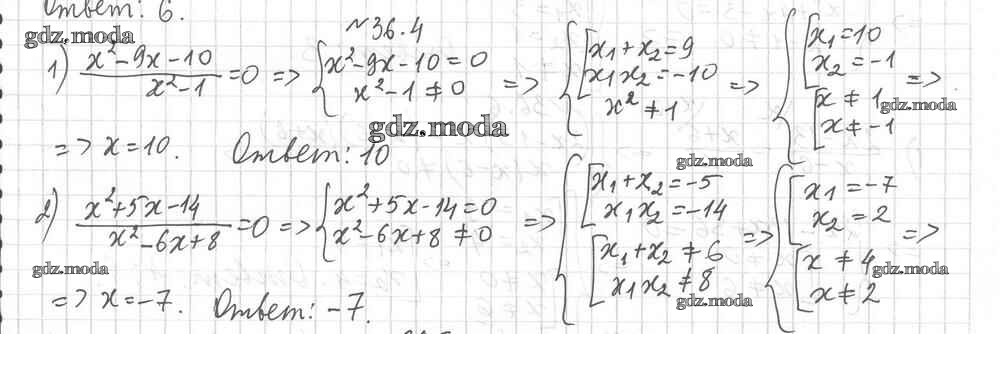 Ответ: 6.
gdz.moda
№36.4
1) (x²-9x-10)/(x²-1) = 0 => { x²-9x-10=0; x²-1≠0 => { [ x₁+x₂=9; x₁x₂=-10; x²≠1 => { [ x₁=10; x₂=-1; [ x≠1; x≠-1 =>
gdz.moda
gdz.moda
=> x=10. Ответ: 10
gdz.moda
2) (x²+5x-14)/(x²-6x+8) = 0 => { x²+5x-14=0; x²-6x+8≠0 => { [ x₁+x₂=-5; x₁x₂=-14; [ x₁+x₂≠6; x₁x₂≠8 => { [ x₁=-7; x₂=2; [ x≠4; x≠2 =>
gdz.moda
gdz.moda
=> x=-7. Ответ: -7.
gdz.moda